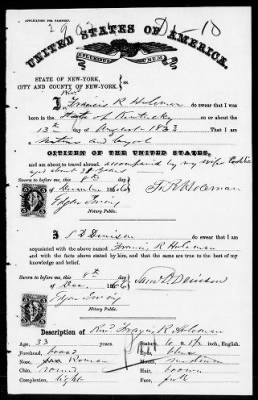 APPLICATION FOR PASSPORT.
UNITED STATES OF AMERICA.
E PLURIBUS UNUM
STATE OF NEW-YORK,
CITY AND COUNTY OF NEW-YORK. } ss
I Francis R Holeman do swear that I was
born in the State of Kentucky on the
13th day of August 1833 That I am
Native and loyal
CITIZEN OF THE UNITED STATES,
and am about to travel abroad, accompanied by my wife
aged about
Sworn before me, this 8th day
of December 1866
Notary Public.
I S D Denison do swear that I am
acquainted with the above named Francis R Holeman
and with the facts above stated by him, and that the same are true to the best of my
knowledge and belief.
Sworn to before me, this 8th day
of Dec. 1866
Notary Public.
Description of Revd Francis R Holeman
Age, 33 years
English.
Forehead, broad
Eyes, blue
Nose, Roman
Mouth, medium
Chin, round
Hair, brown
Completion, light
Face, full